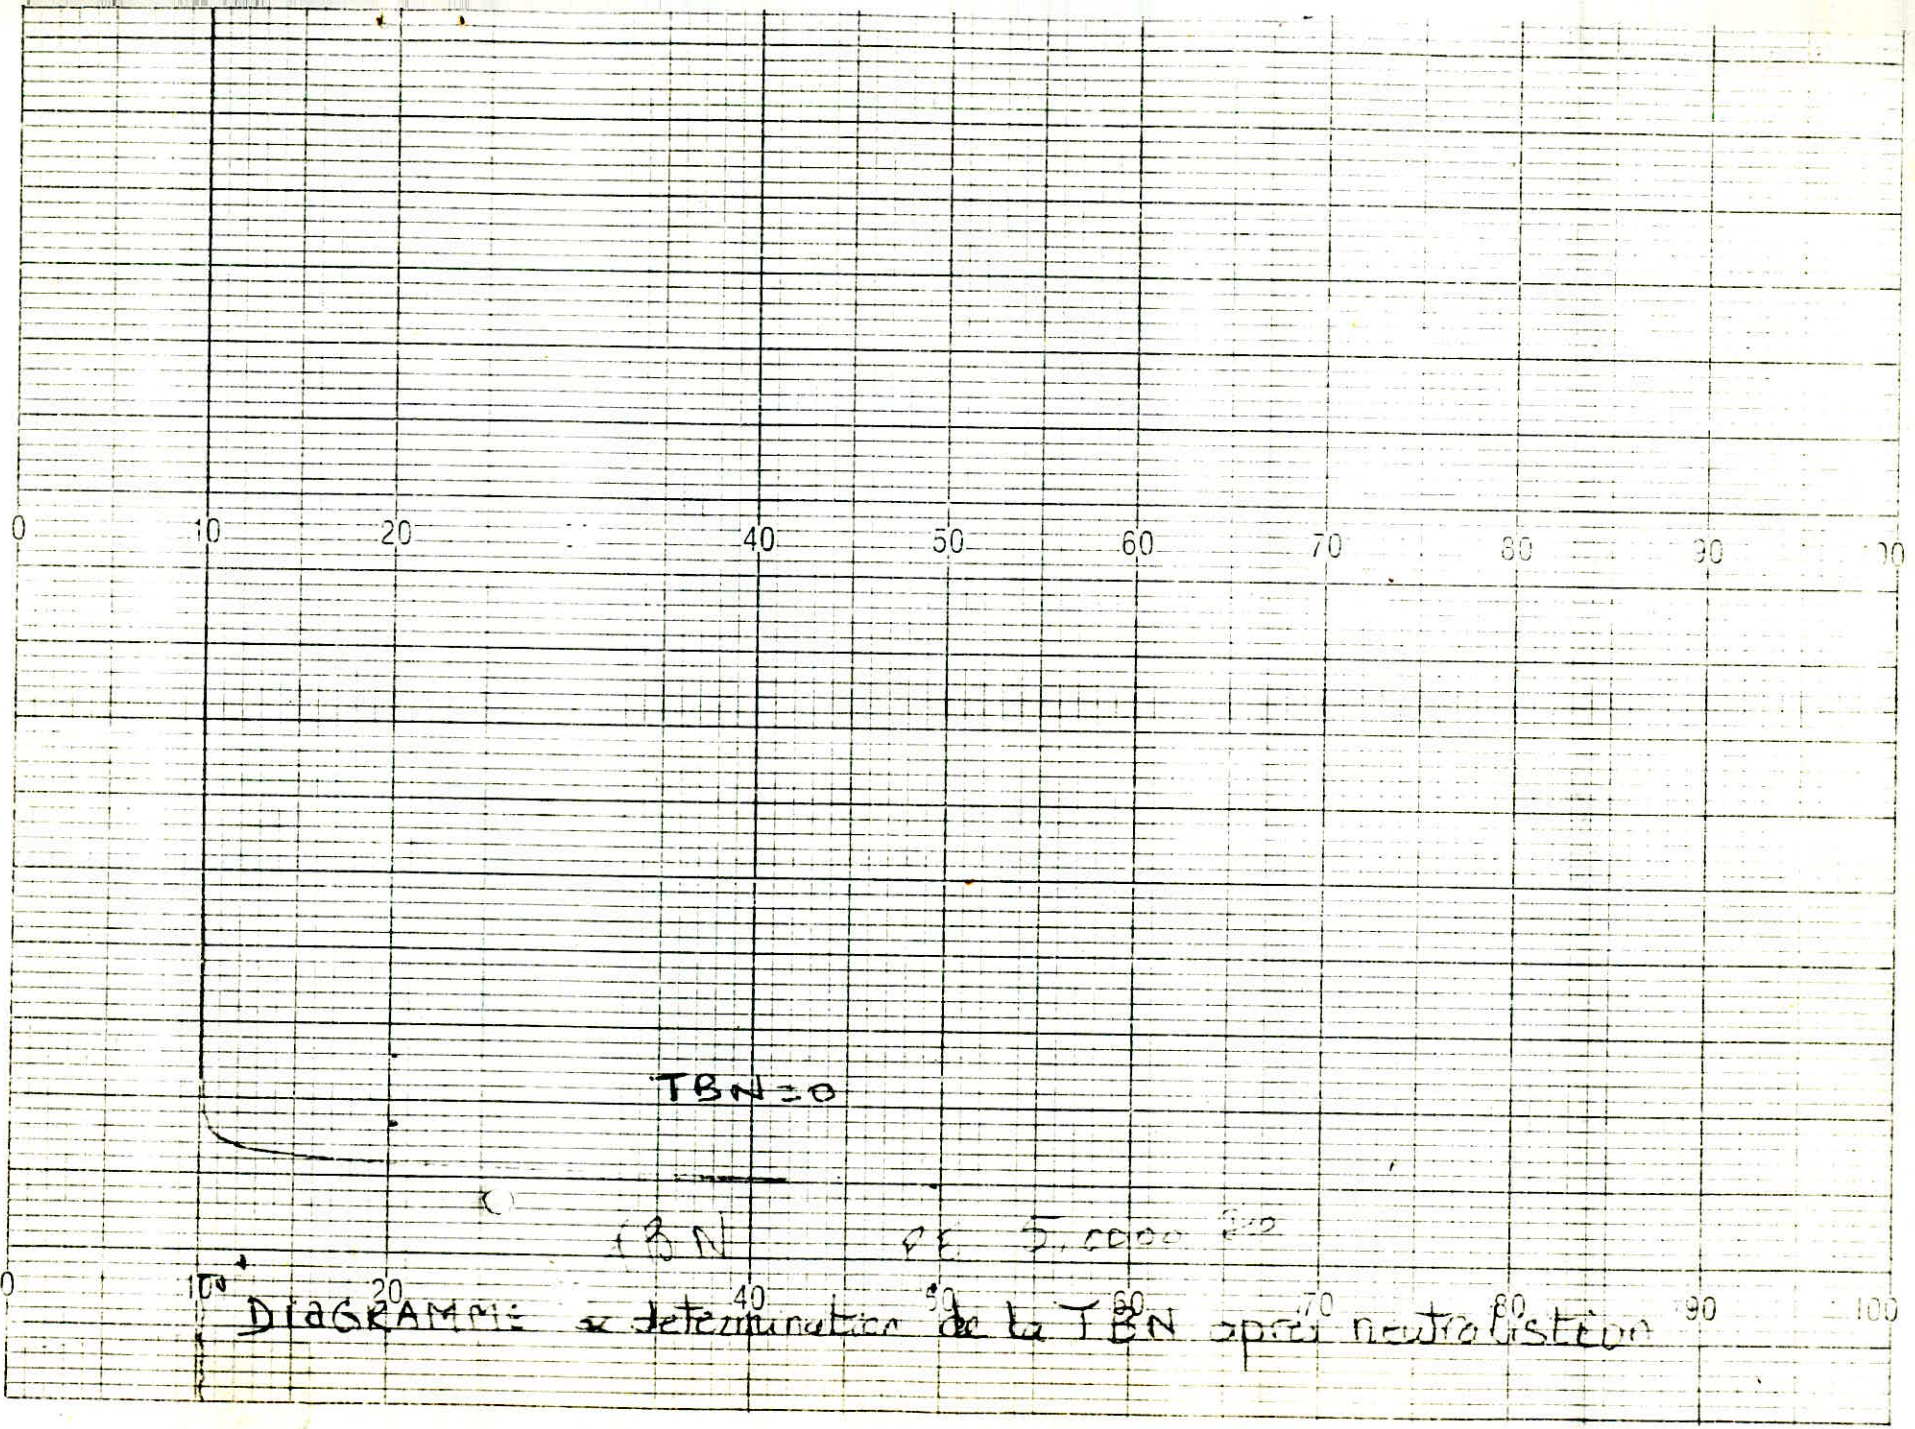 0 10 20 40 50 60 70 80 90
TBN=0
BN DE 5,0000
0 10 20 40 50 70 80 90 100
DIAGRAMME determination de la TBN apres neutralistion